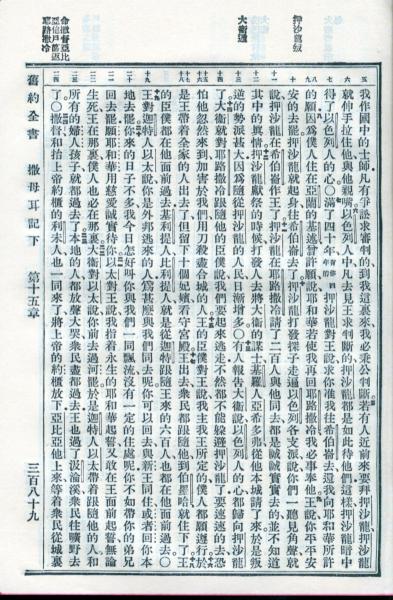 押沙龍叛
大衛逃
我作國中的士師凡有爭訟求審判的到我這裏來我必秉公判斷若有人近前來要拜押沙龍押沙龍
就伸手拉住他與他親嘴以色列人中凡去見王求判斷的押沙龍都是如此待他們這樣押沙龍暗中
得了以色列人的心〇滿了四十年押沙龍對王說求你准我往希伯崙去還我向耶和華所許
的願因爲僕人住在亞蘭的基述曾許願說耶和華若使我再回耶路撒冷我必事奉他王說你平平安
安的去罷押沙龍就起身往希伯崙去了押沙龍打發探子走遍以色列各支派說你們一聽見角聲就
說押沙龍在希伯崙作王了押沙龍在耶路撒冷請了二百人與他同去都是誠誠實實去的並不知道
其中的真情押沙龍獻祭的時候打發人去將大衛的謀士基羅人亞希多弗從他本城請了來於是叛
逆的勢派甚大因爲隨從押沙龍的人民日漸增多有人報告大衛說以色列人的心都歸向押沙龍
了大衛就對耶路撒冷跟隨他的臣僕說我們要起來逃走不然都不能躲避押沙龍了要速速的去恐
怕他忽然來到加害於我們用刀殺盡合城的人王的臣僕對王說我主我王所定的僕人都願遵行於
是王帶着全家的人出去了但留下十個妃嬪看守宮殿王出去衆民都跟隨他到伯墨哈就住下了王
的臣僕都在他面前過去基利提人比利提人就是從迦特跟隨王來的六百人也都在他面前過去〇
王對迦特人以太說你是外邦逃來的人爲甚麼與我們同去呢你可以回去與新王同住或者回你本
地去罷你來的日子不多我今日怎好叫你與我們一同飄流沒有一定的住處呢你不如帶你的弟兄
回去罷願耶和華用慈愛誠實待你以太對王說我指着永生的耶和華起誓又敢在王面前起誓無論
生死王在那裏僕人也必在那裏大衛對以太說你前去過河罷於是迦特人以太帶着跟隨他的人和
所有的婦人孩子就都過去了本地的人都放聲大哭衆民盡都過去王也過了汲淪溪衆民往曠野去
了〇撒督和抬上帝約櫃的利未人也一同來了將上帝的約櫃放下亞比亞他上來等着衆民從城裏
舊約全書 撒母耳記下 第十五章 三百八十九